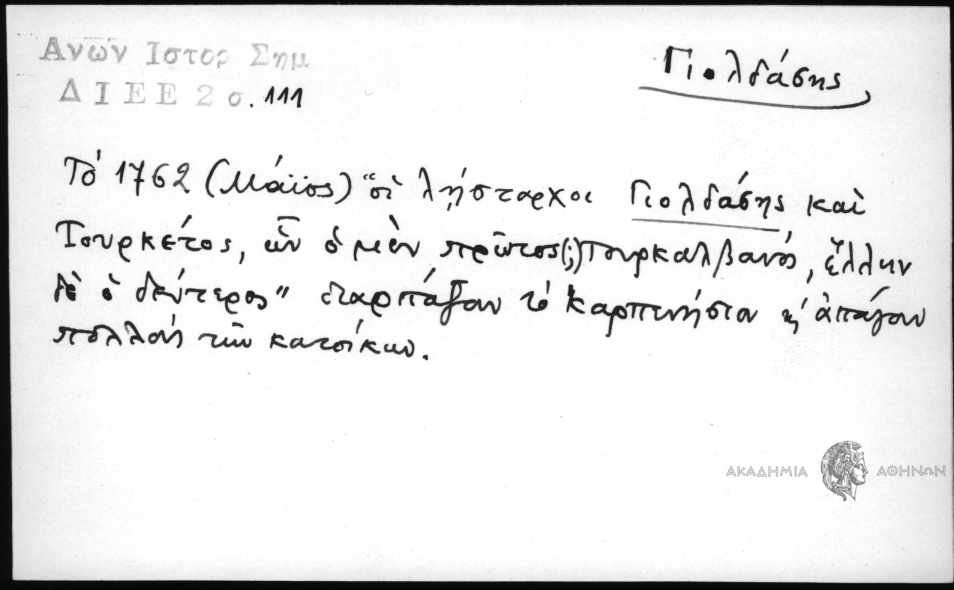 Ανων Ιστορ Σημ
ΔΙΕΕ 2 σ. 111
Γιολδάσης
Τὸ 1762 (Μάϊος) "οἱ λῄσταρχοι Γιολδάσης καὶ
Τουρκέτος, ὧν ὁ μὲν πρῶτος(;) Τουρκαλβανός, ἕλλην
δὲ ὁ δεύτερος" διαρπάζουν τὸ Καρπενήσιον κ' ἀπάγουν
πολλοὺς τῶν κατοίκων.
ΑΚΑΔΗΜΙΑ ΑΘΗΝΩΝ